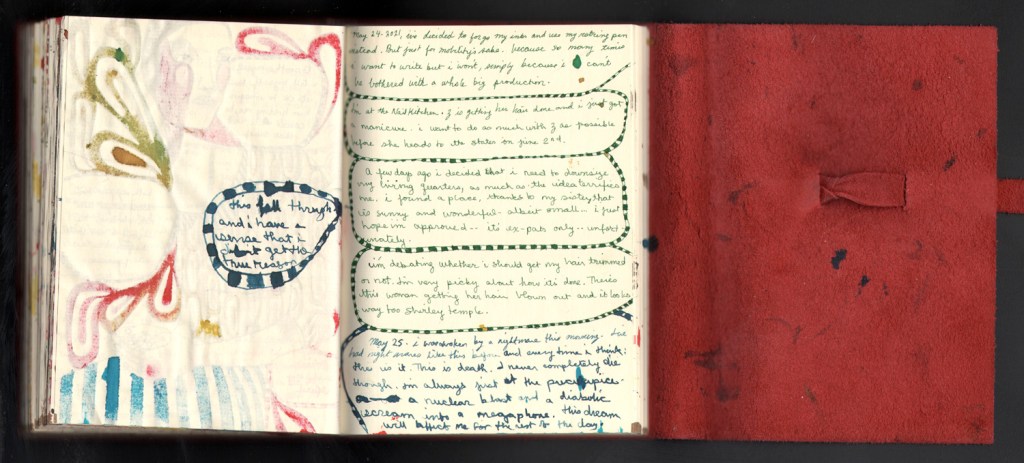 this fall through
and i have a
sense that i
didn't get the
true reason
May 24. 2021, i've decided to forgo my inks and use my rotring pen
instead. But just for mobility's sake. because so many times
i want to write but i won't, simply because i can't
be bothered with a whole big production.
i'm at the Nail Kitchen. Z is getting her hair done and i just got
a manicure. i want to do as much with Z as possible
before she heads to the states on june 2nd.
A few days ago i decided that i need to downsize
my living quarters, as much as the idea terrifies
me. i found a place, thanks to my sister, that
is sunny and wonderful - albeit small... i just
hope i'm approved... it's ex-pats only... unfort
unately.
i'm debating whether i should get my hair trimmed
or not. i'm very picky about how it's done. There's
this woman getting her hair blown out and it looks
way too shirley temple.
May 25. i was woken by a nightmare this morning. i've
had night scares like this before and every time i think:
this is it. This is death. i never completely die
though. i'm always just at the precipice
a nuclear blast and a diabolic
scream into a megaphone. this dream
will affect me for the rest of the day!